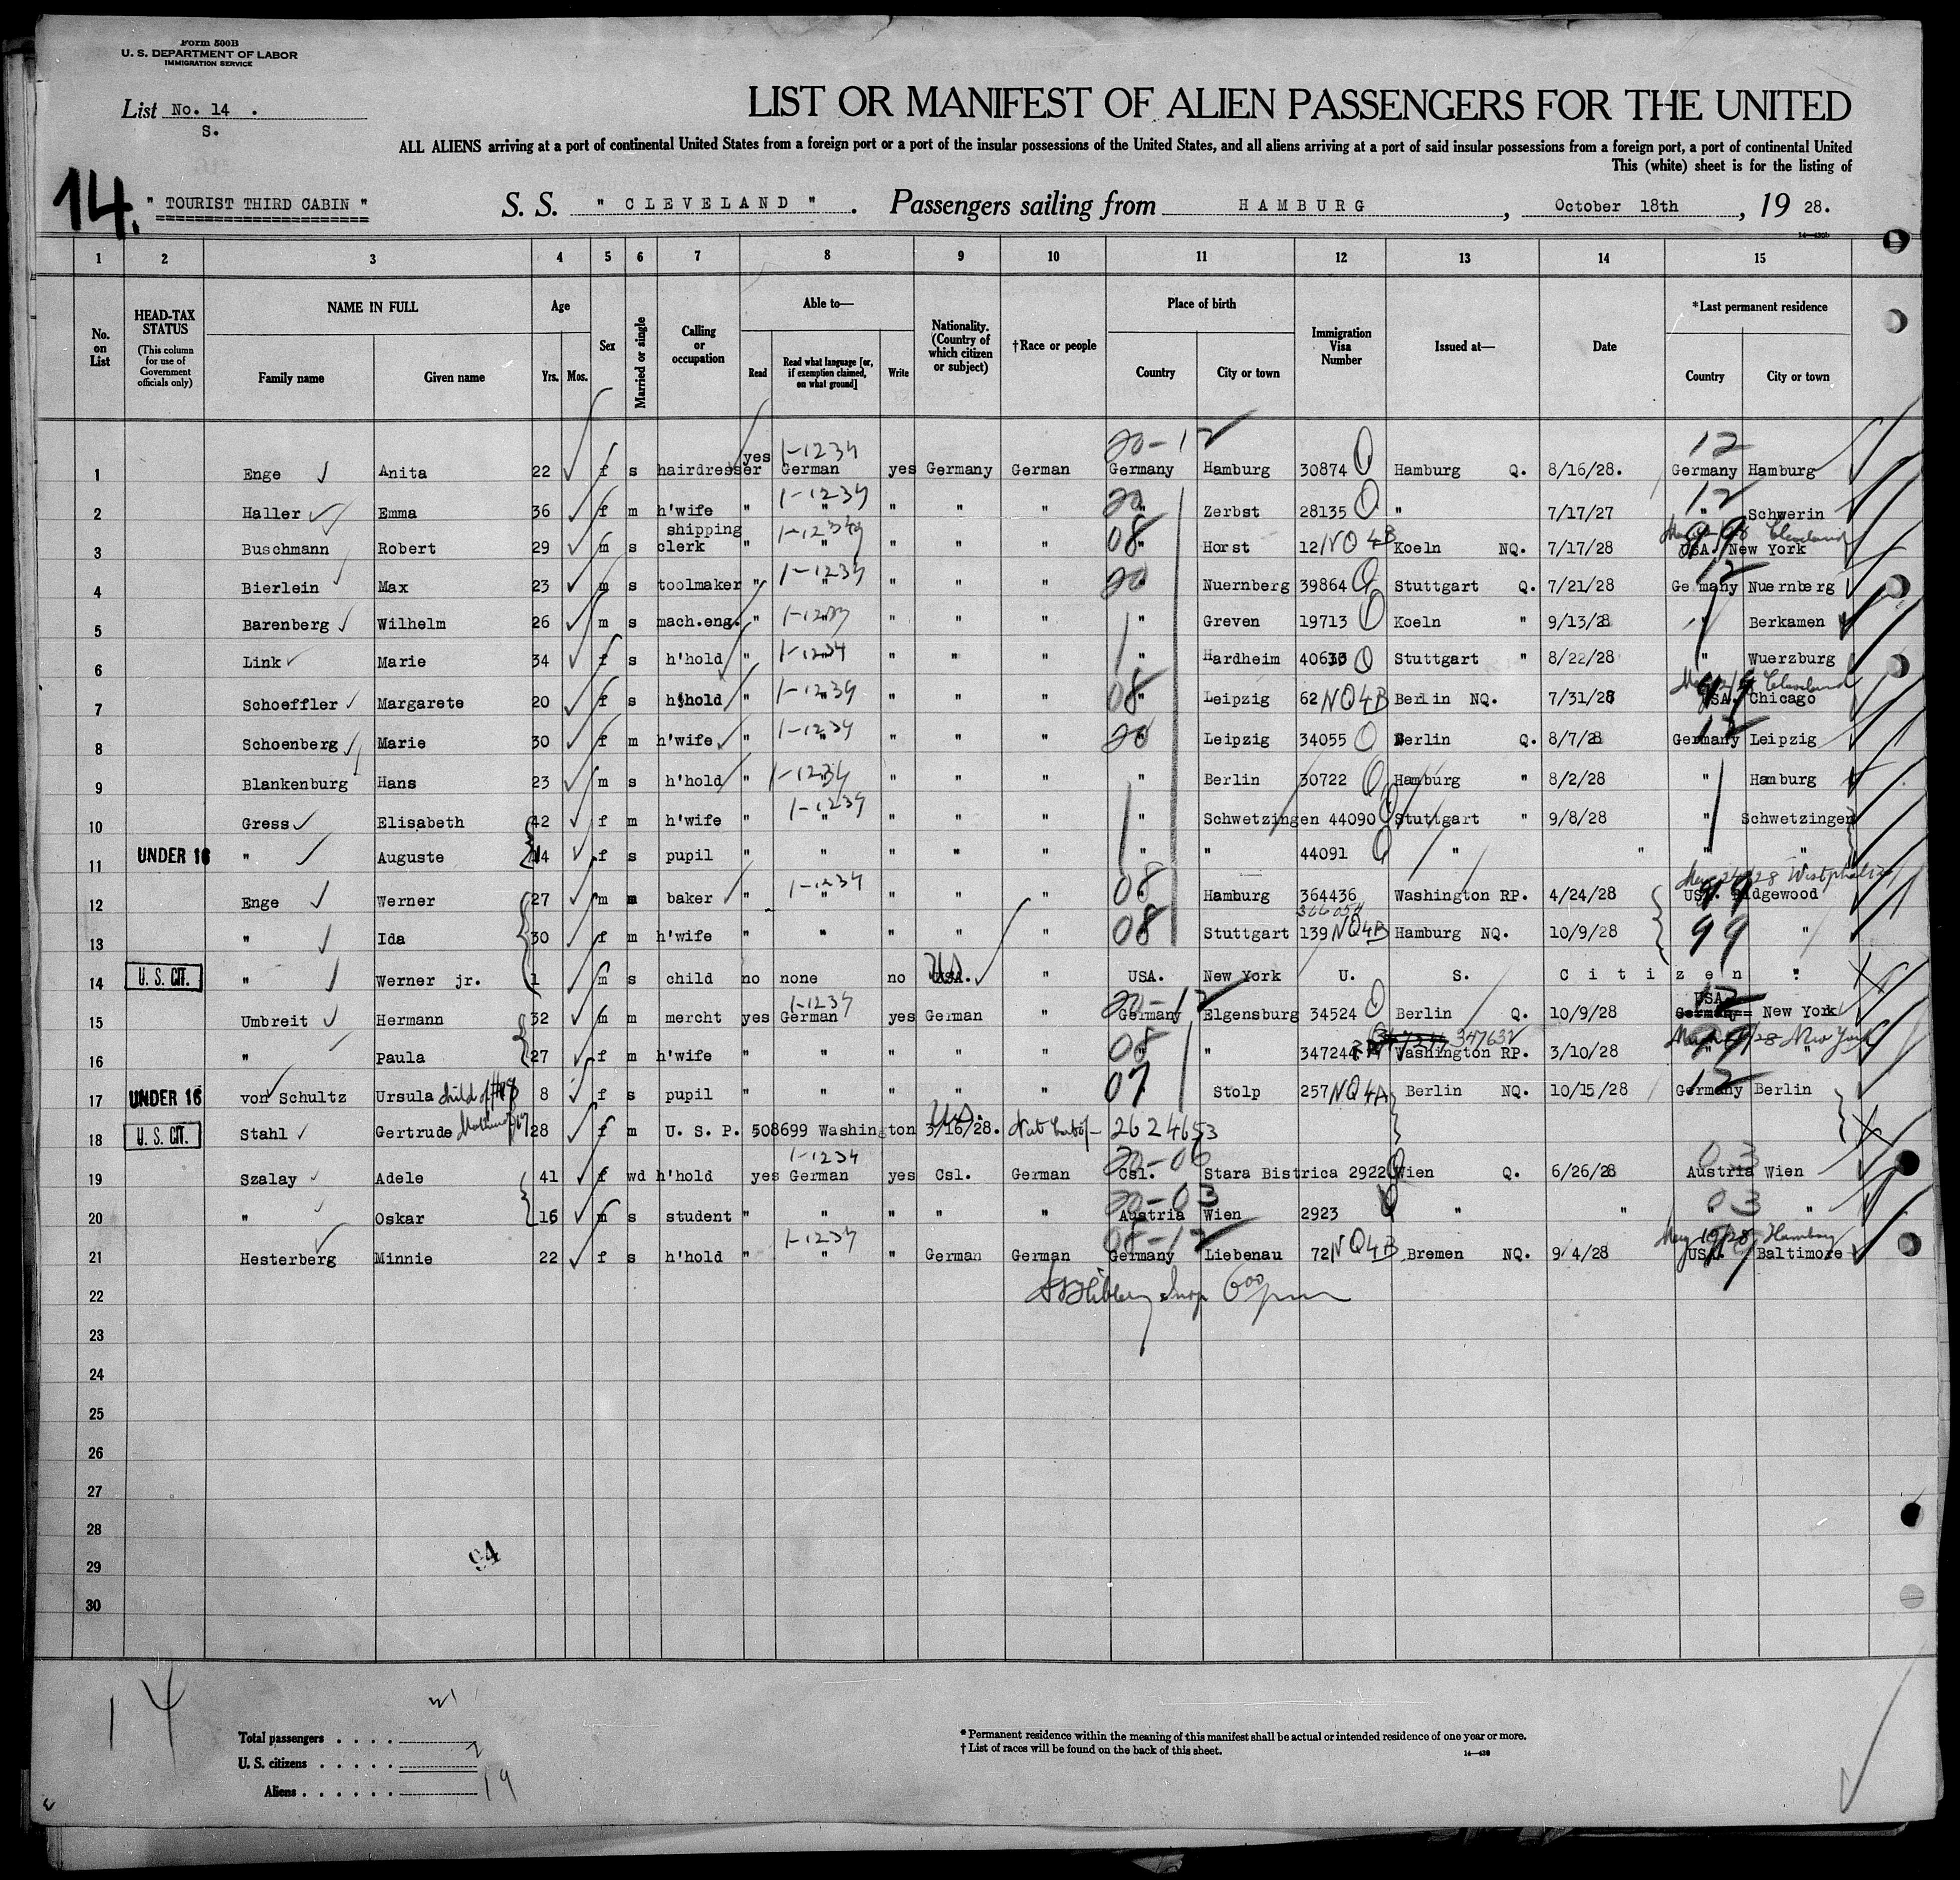 Form 500B
U. S. DEPARTMENT OF LABOR
IMMIGRATION SERVICE
List No. 14 .
S.
LIST OR MANIFEST OF ALIEN PASSENGERS FOR THE UNITED
ALL ALIENS arriving at a port of continental United States from a foreign port or a port of the insular possessions of the United States, and all aliens arriving at a port of said insular possessions from a foreign port, a port of continental United
This (white) sheet is for the listing of
14. " TOURIST THIRD CABIN " S. S. " CLEVELAND " . Passengers sailing from HAMBURG , October 18th , 19 28.
1 2 3 4 5 6 7 8 9 10 11 12 13 14 15
No. on List
HEAD-TAX STATUS (This column for use of Government officials only)
NAME IN FULL Family name Given name
Age Yrs. Mos.
Sex
Married or single
Calling or occupation
Able to— Read Read what language [or, if exemption claimed, on what ground] Write
Nationality. (Country of which citizen or subject)
†Race or people
Place of birth Country City or town
Immigration Visa Number
Issued at—
Date
*Last permanent residence Country City or town
20-12 12
1 Enge Anita 22 f s hairdresser yes 1-1234 German yes Germany German Germany Hamburg 30874 Hamburg Q. 8/16/28. Germany Hamburg
2 Haller Emma 36 f m h'wife " 1-1234 " " " " 20 " Zerbst 28135 " 7/17/27 12 " Schwerin
3 Buschmann Robert 29 m s shipping clerk " 1-1234 " " " " 08 " Horst 12 NQ4B Koeln NQ. 7/17/28 99 Cleveland USA. New York
4 Bierlein Max 23 m s toolmaker " 1-1234 " " " 20 " Nuernberg 39864 Stuttgart Q. 7/21/28 12 Germany Nuernberg
5 Barenberg Wilhelm 26 m s mach.eng. " 1-1234 " " " " Greven 19713 Koeln " 9/13/28 " Berkamen
6 Link Marie 34 f s h'hold " 1-1234 " " " " Hardheim 40633 Stuttgart " 8/22/28 " Wuerzburg
7 Schoeffler Margarete 20 f s h'hold " 1-1234 " " " " 08 " Leipzig 62 NQ4B Berlin NQ. 7/31/28 99 Cleveland USA. Chicago
8 Schoenberg Marie 30 f m h'wife " 1-1234 " " " " 20 " Leipzig 34055 Berlin Q. 8/7/28 12 Germany Leipzig
9 Blankenburg Hans 23 m s h'hold " 1-1234 " " " " Berlin 30722 Hamburg " 8/2/28 " Hamburg
10 Gress Elisabeth 42 f m h'wife " 1-1234 " " " " " Schwetzingen 44090 Stuttgart " 9/8/28 " Schwetzingen
11 UNDER 16 " Auguste 14 f s pupil " " " " " " " 44091 " " " "
12 Enge Werner 27 m m baker " 1-1234 " " " " 08 " Hamburg 364436 Washington RP. 4/24/28 99 Westphalia USA. Ridgewood
13 " Ida 30 f m h'wife " " " " " 08 Stuttgart 139 NQ4B Hamburg NQ. 10/9/28 99 "
14 U. S. CIT. " Werner jr. 1 m s child no none no US USA. " USA. New York U. S. Citizen "
15 Umbreit Hermann 32 m m mercht yes 1-1234 German yes German " 20-12 Germany Elgensburg 34524 Berlin Q. 10/9/28 12 USA. Germany New York
16 " Paula 27 f m h'wife " " " " " 08 " 347244 347632 Washington RP. 3/10/28 99 New York " "
17 UNDER 16 von Schultz Ursula child of #18 8 f s pupil " " " " " 07 Stolp 257 NQ4A Berlin NQ. 10/15/28 12 Germany Berlin
18 U. S. CIT. Stahl Gertrude Mother of #17 28 f m U. S. P. 508699 Washington 3/16/28. U.S. 2624653
19 Szalay Adele 41 f wd h'hold yes 1-1234 German yes Csl. German 20-06 Csl. Stara Bistrica 2922 Wien Q. 6/26/28 03 Austria Wien
20 " Oskar 16 m s student " " " " " 20-03 Austria Wien 2923 " " 03 " "
21 Hesterberg Minnie 22 f s h'hold " 1-1234 " " German German 08-12 Germany Liebenau 72 NQ4B Bremen NQ. 9/4/28 99 Hamburg USA. Baltimore
22
23
24
25
26
27
28
29 94
30
14
Total passengers . . . .
U. S. citizens . . . . . 2
Aliens . . . . . . 19
* Permanent residence within the meaning of this manifest shall be actual or intended residence of one year or more.
† List of races will be found on the back of this sheet.